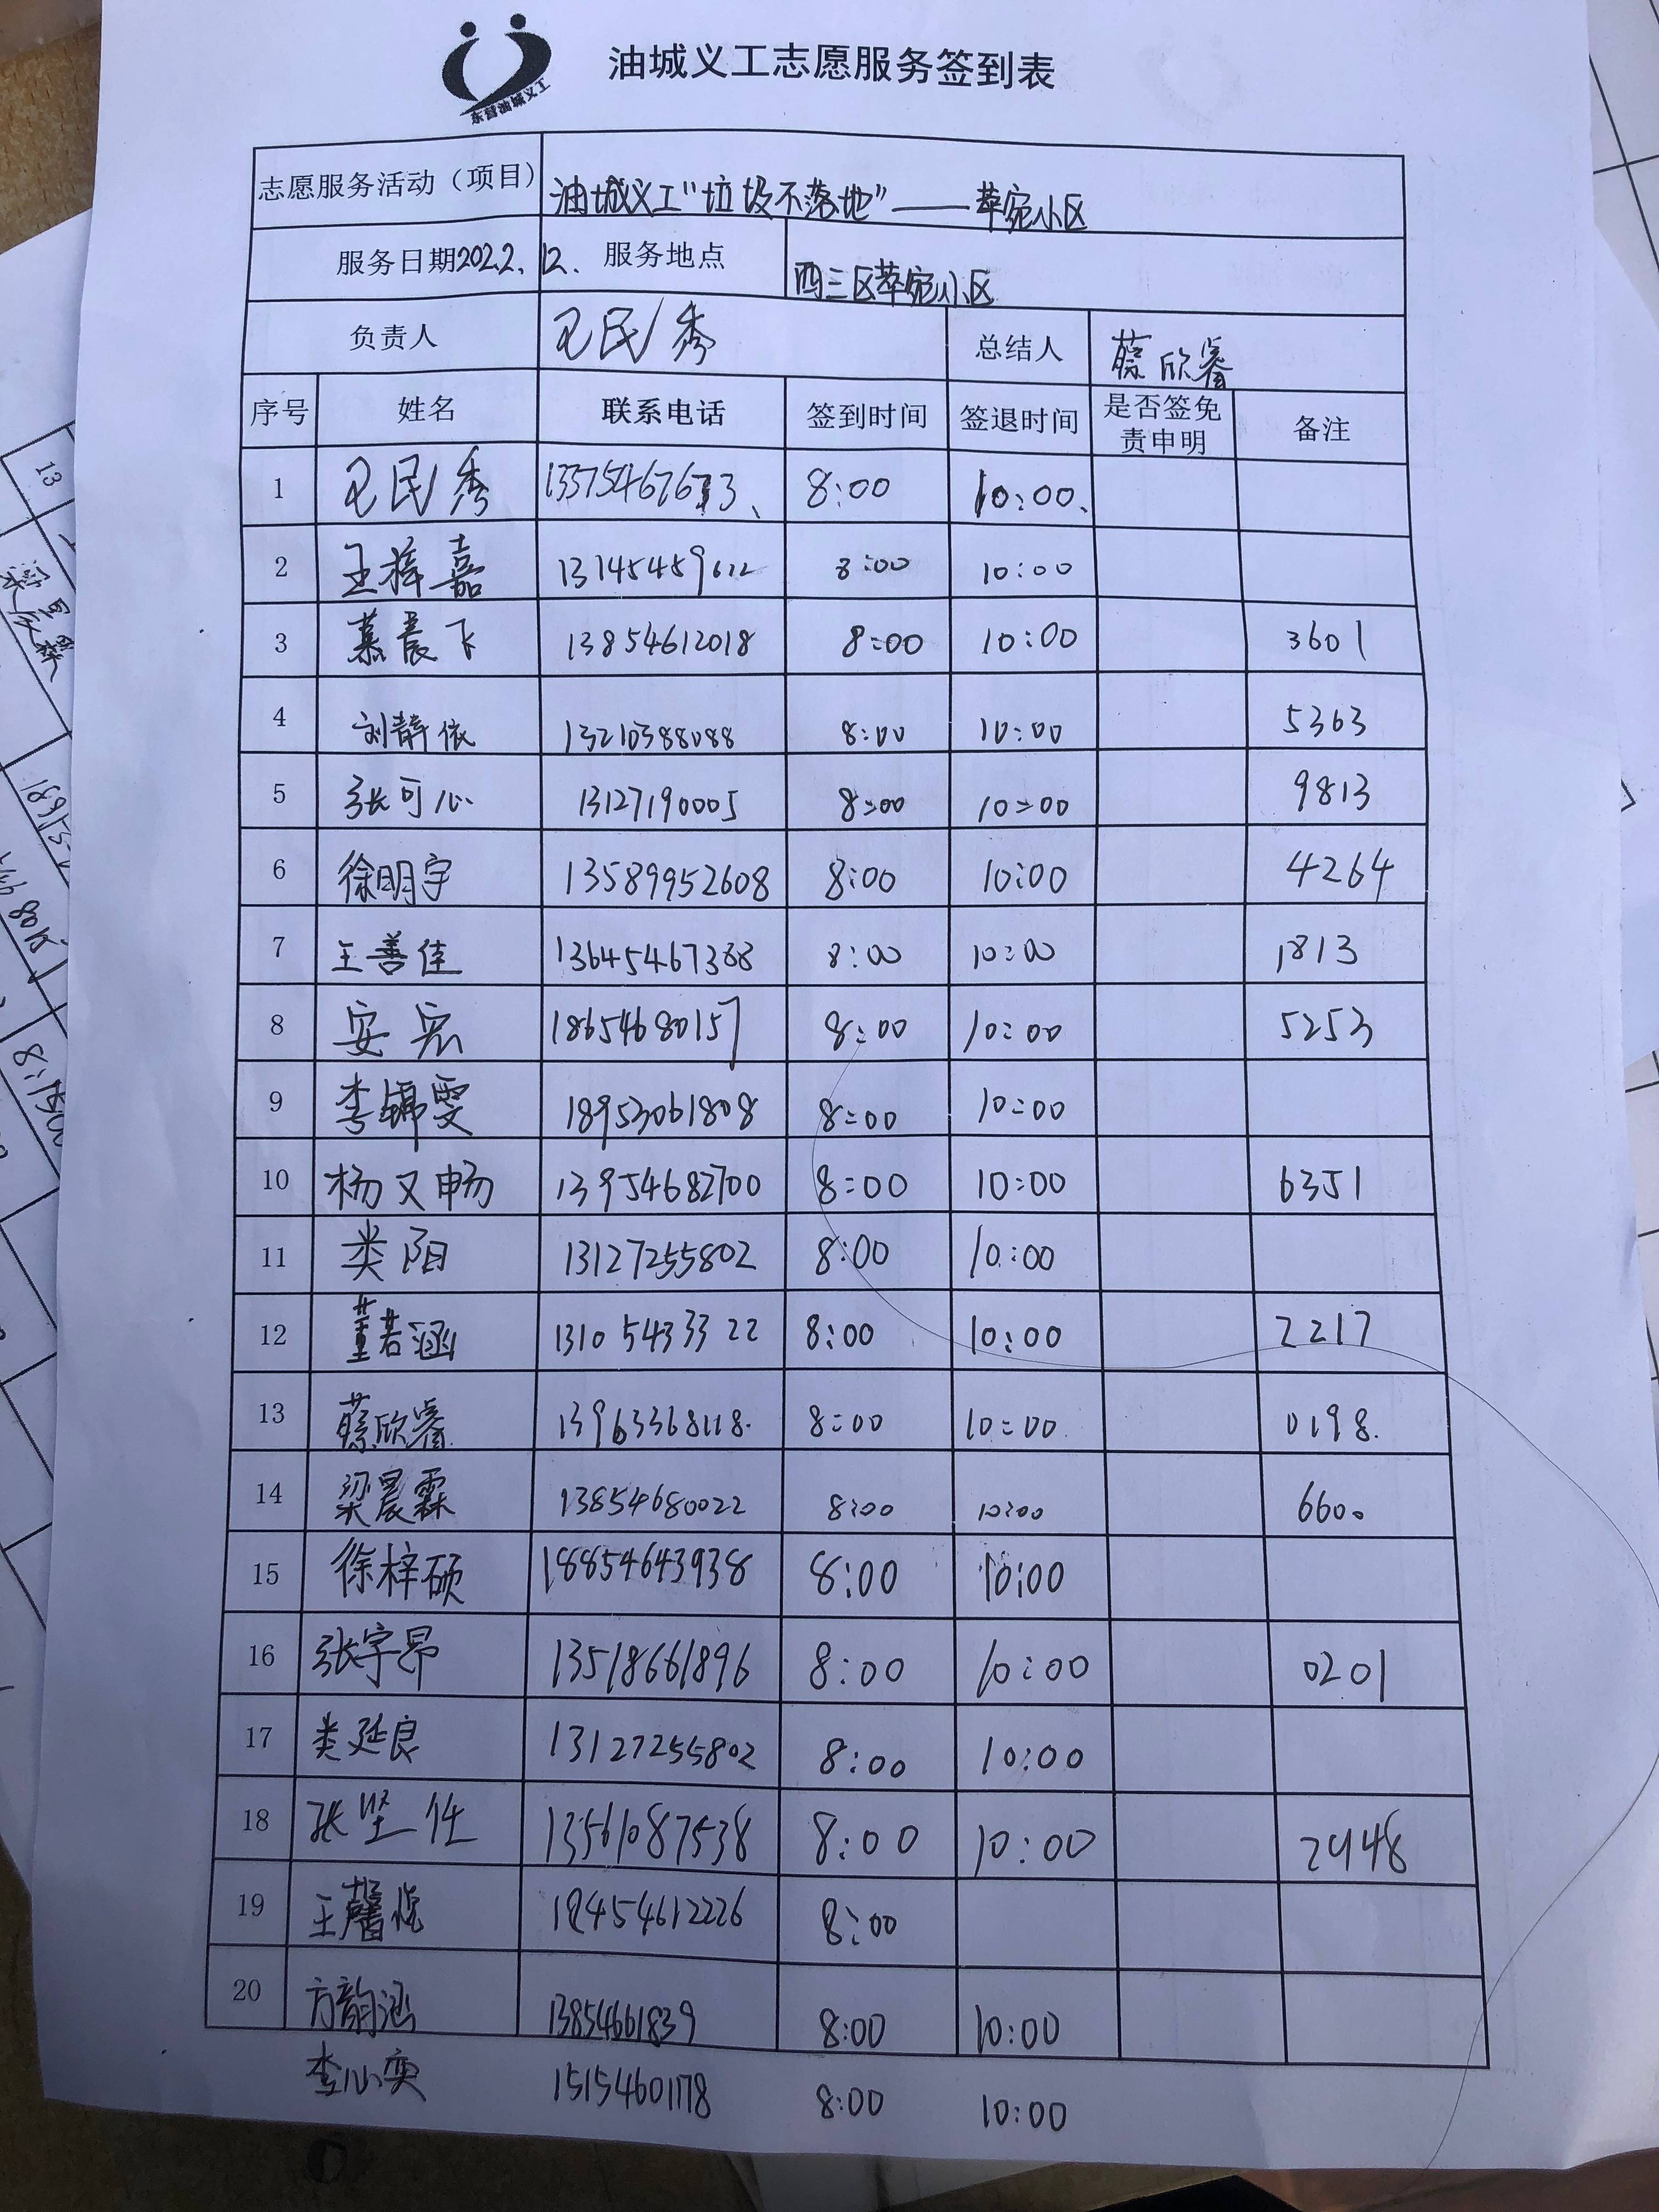 东营油城义工
油城义工志愿服务签到表
志愿服务活动（项目） 油城义工“垃圾不落地”——萃宛小区
服务日期2022.12. 服务地点 西三区萃宛小区
负责人 民秀 总结人 蔡欣睿
序号 姓名 联系电话 签到时间 签退时间 是否签免责申明 备注
1 民秀 8:00 10:00.
2 王梓嘉 13145459612 8:00 10:00
3 慕晨飞 13854612018 8:00 10:00 3601
4 刘静依 13210388088 8:00 10:00 5363
5 张可心 13127190005 8:00 10:00 9813
6 徐明宇 13589952608 8:00 10:00 4264
7 王善佳 13645467388 8:00 10:00 1813
8 安宏 18654680157 8:00 10:00 5253
9 李锦雯 18953061808 8:00 10:00
10 杨又畅 13954682700 8:00 10:00 6351
11 类阳 13127255802 8:00 10:00
12 董若涵 13105433322 8:00 10:00 2217
13 蔡欣睿 13963368118. 8:00 10:00 0198.
14 梁晨霖 13854680022 8:00 10:00 6600
15 徐梓硕 18854643938 8:00 10:00
16 张宇昂 13518661896 8:00 10:00 0201
17 类延良 13127255802 8:00 10:00
18 张坚仕 13561087538 8:00 10:00 2948
19 王馨悦 8:00
20 方韵涵 13854661839 8:00 10:00
李心奕 15154601178 8:00 10:00